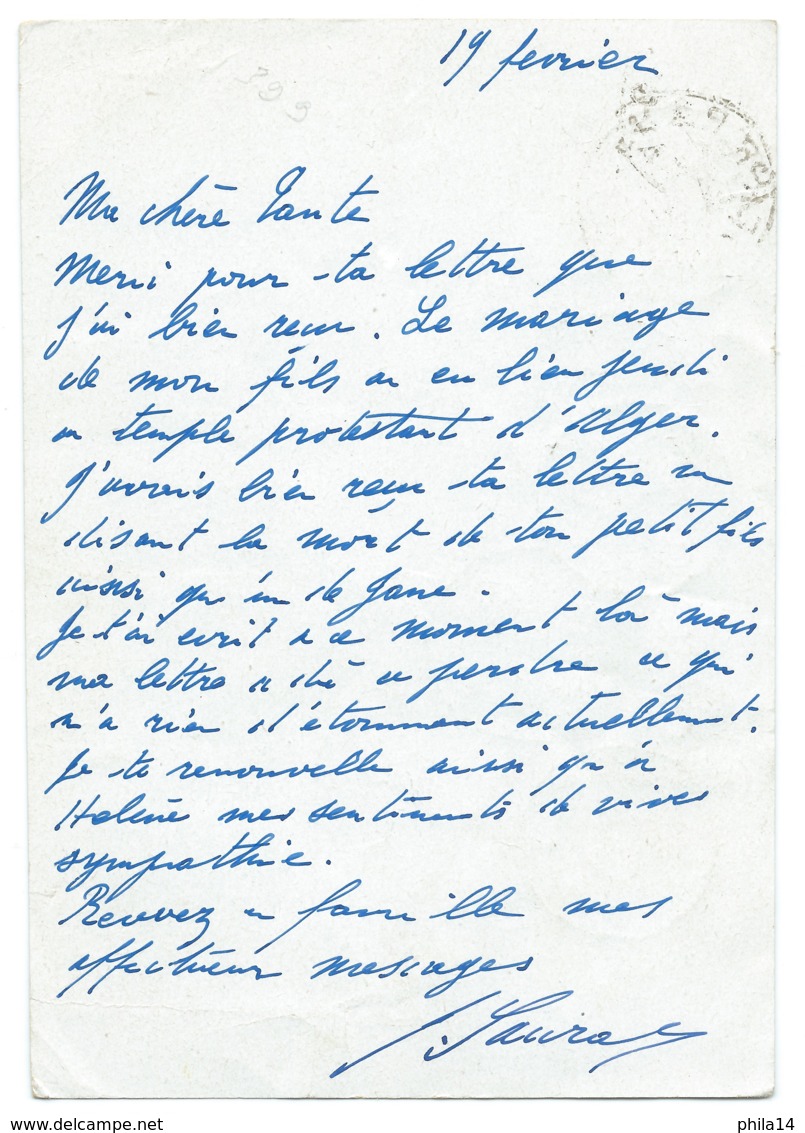 19 fevrier
Ma chère Tante
Merci pour ta lettre que
j'ai bien reçu. Le mariage
de mon fils a eu lieu jeudi
au temple protestant d'Alger.
J'avais bien reçu ta lettre me
disant la mort de ton petit fils
ainsi que de Jane.
Je t'ai ecrit a ce moment là mais
ma lettre a dû se perdre ce qui
n'a rien d'étonnant actuellement.
Je te renouvelle ainsi qu'à
Helène mes sentiments de vives
sympathie.
Recevez en famille mes
affectueux messages
www.delcampe.net
phila14